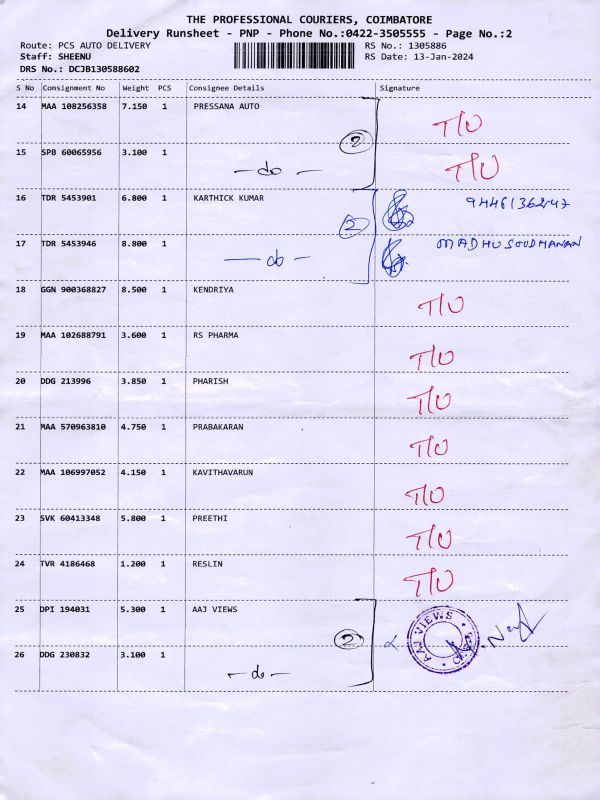 THE PROFESSIONAL COURIERS, COIMBATORE
Delivery Runsheet - PNP - Phone No.:0422-3505555 - Page No.:2
Route: PCS AUTO DELIVERY RS No.: 1305886
Staff: SHEENU RS Date: 13-Jan-2024
DRS No.: DCJB130588602
S No Consignment No Weight PCS Consignee Details Signature
14 MAA 108256358 7.150 1 PRESSANA AUTO T/U
2
15 SPB 60065956 3.100 1 T/U
—do—
16 TDR 5453901 6.800 1 KARTHICK KUMAR
2
17 TDR 5453946 8.800 1 MADHUSOODHANAN
—do—
18 GGN 900368827 8.500 1 KENDRIYA T/U
19 MAA 102688791 3.600 1 RS PHARMA T/U
20 DDG 213996 3.850 1 PHARISH T/U
21 MAA 570963810 4.750 1 PRABAKARAN T/U
22 MAA 106997052 4.150 1 KAVITHAVARUN T/U
23 SVK 60413348 5.800 1 PREETHI T/U
24 TVR 4186468 1.200 1 RESLIN T/U
25 DPI 194031 5.300 1 AAJ VIEWS AAJ VIEWS
2
26 DDG 230832 3.100 1
—do—